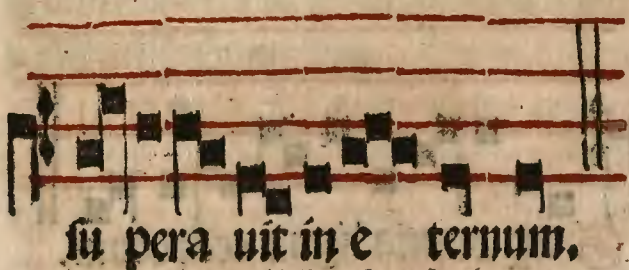 su pera uit in e ternum.